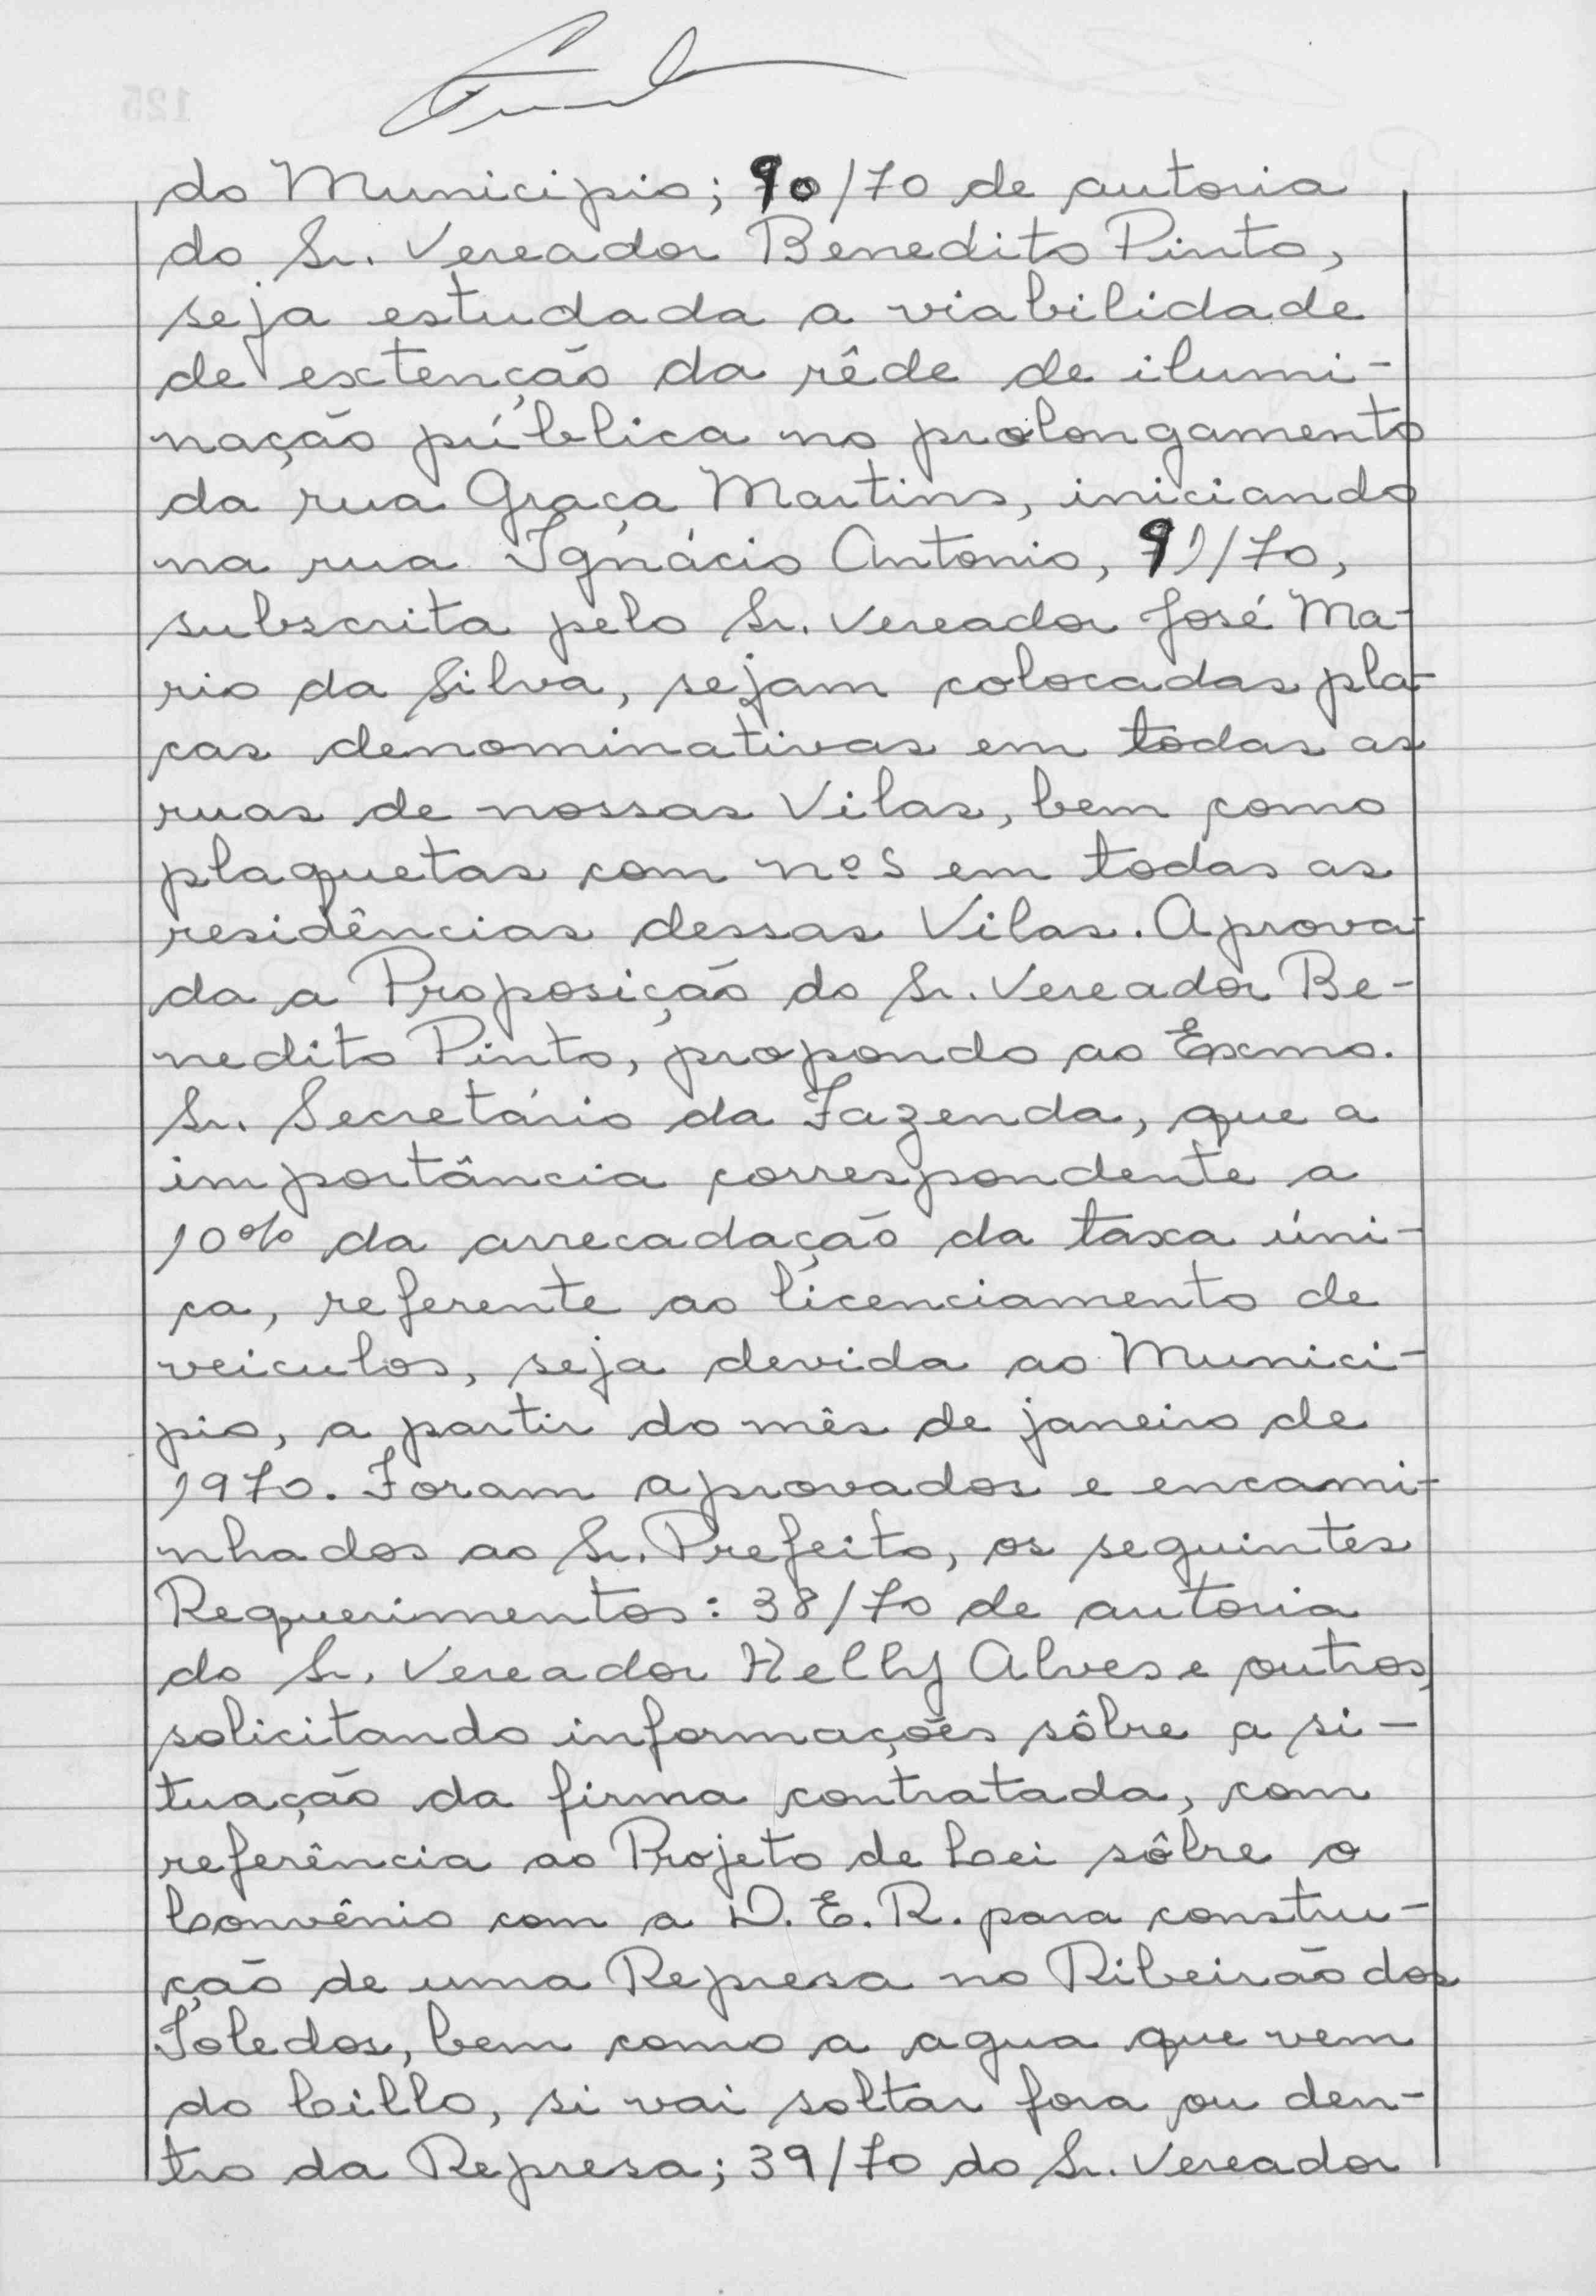 do Municipio; 90/70 de autoria
do Sr. Vereador Benedito Pinto,
seja estudada a viabilidade
de extenção da rêde de ilumi-
nação pública no prolongamento
da rua Graça Martins, iniciando
na rua Ignácio Antonio, 91/70,
subscrita pelo Sr. Vereador José Ma-
rio da Silva, sejam colocadas pla-
cas denominativas em todas as
ruas de nossas Vilas, bem como
plaquetas com nºs em todas as
residências dessas Vilas. Aprova-
da a Proposição do Sr. Vereador Be-
nedito Pinto, propondo ao Exmo.
Sr. Secretário da Fazenda, que a
importância correspondente a
10% da arrecadação da taxa úni-
ca, referente ao licenciamento de
veiculos, seja devida ao Munici-
pio, a partir do mês de janeiro de
1970. Foram aprovados e encami-
nhados ao Sr. Prefeito, os seguintes
Requerimentos: 38/70 de autoria
do Sr. Vereador Kelly Alves e outros,
solicitando informações sôbre a si-
tuação da firma contratada, com
referência ao Projeto de Lei sôbre o
Convênio com a D.E.R. para constru-
ção de uma Represa no Ribeirão dos
Toledos, bem como a agua que vem
do Cillo, si vai soltar fora ou den-
tro da Represa; 39/70 do Sr. Vereador